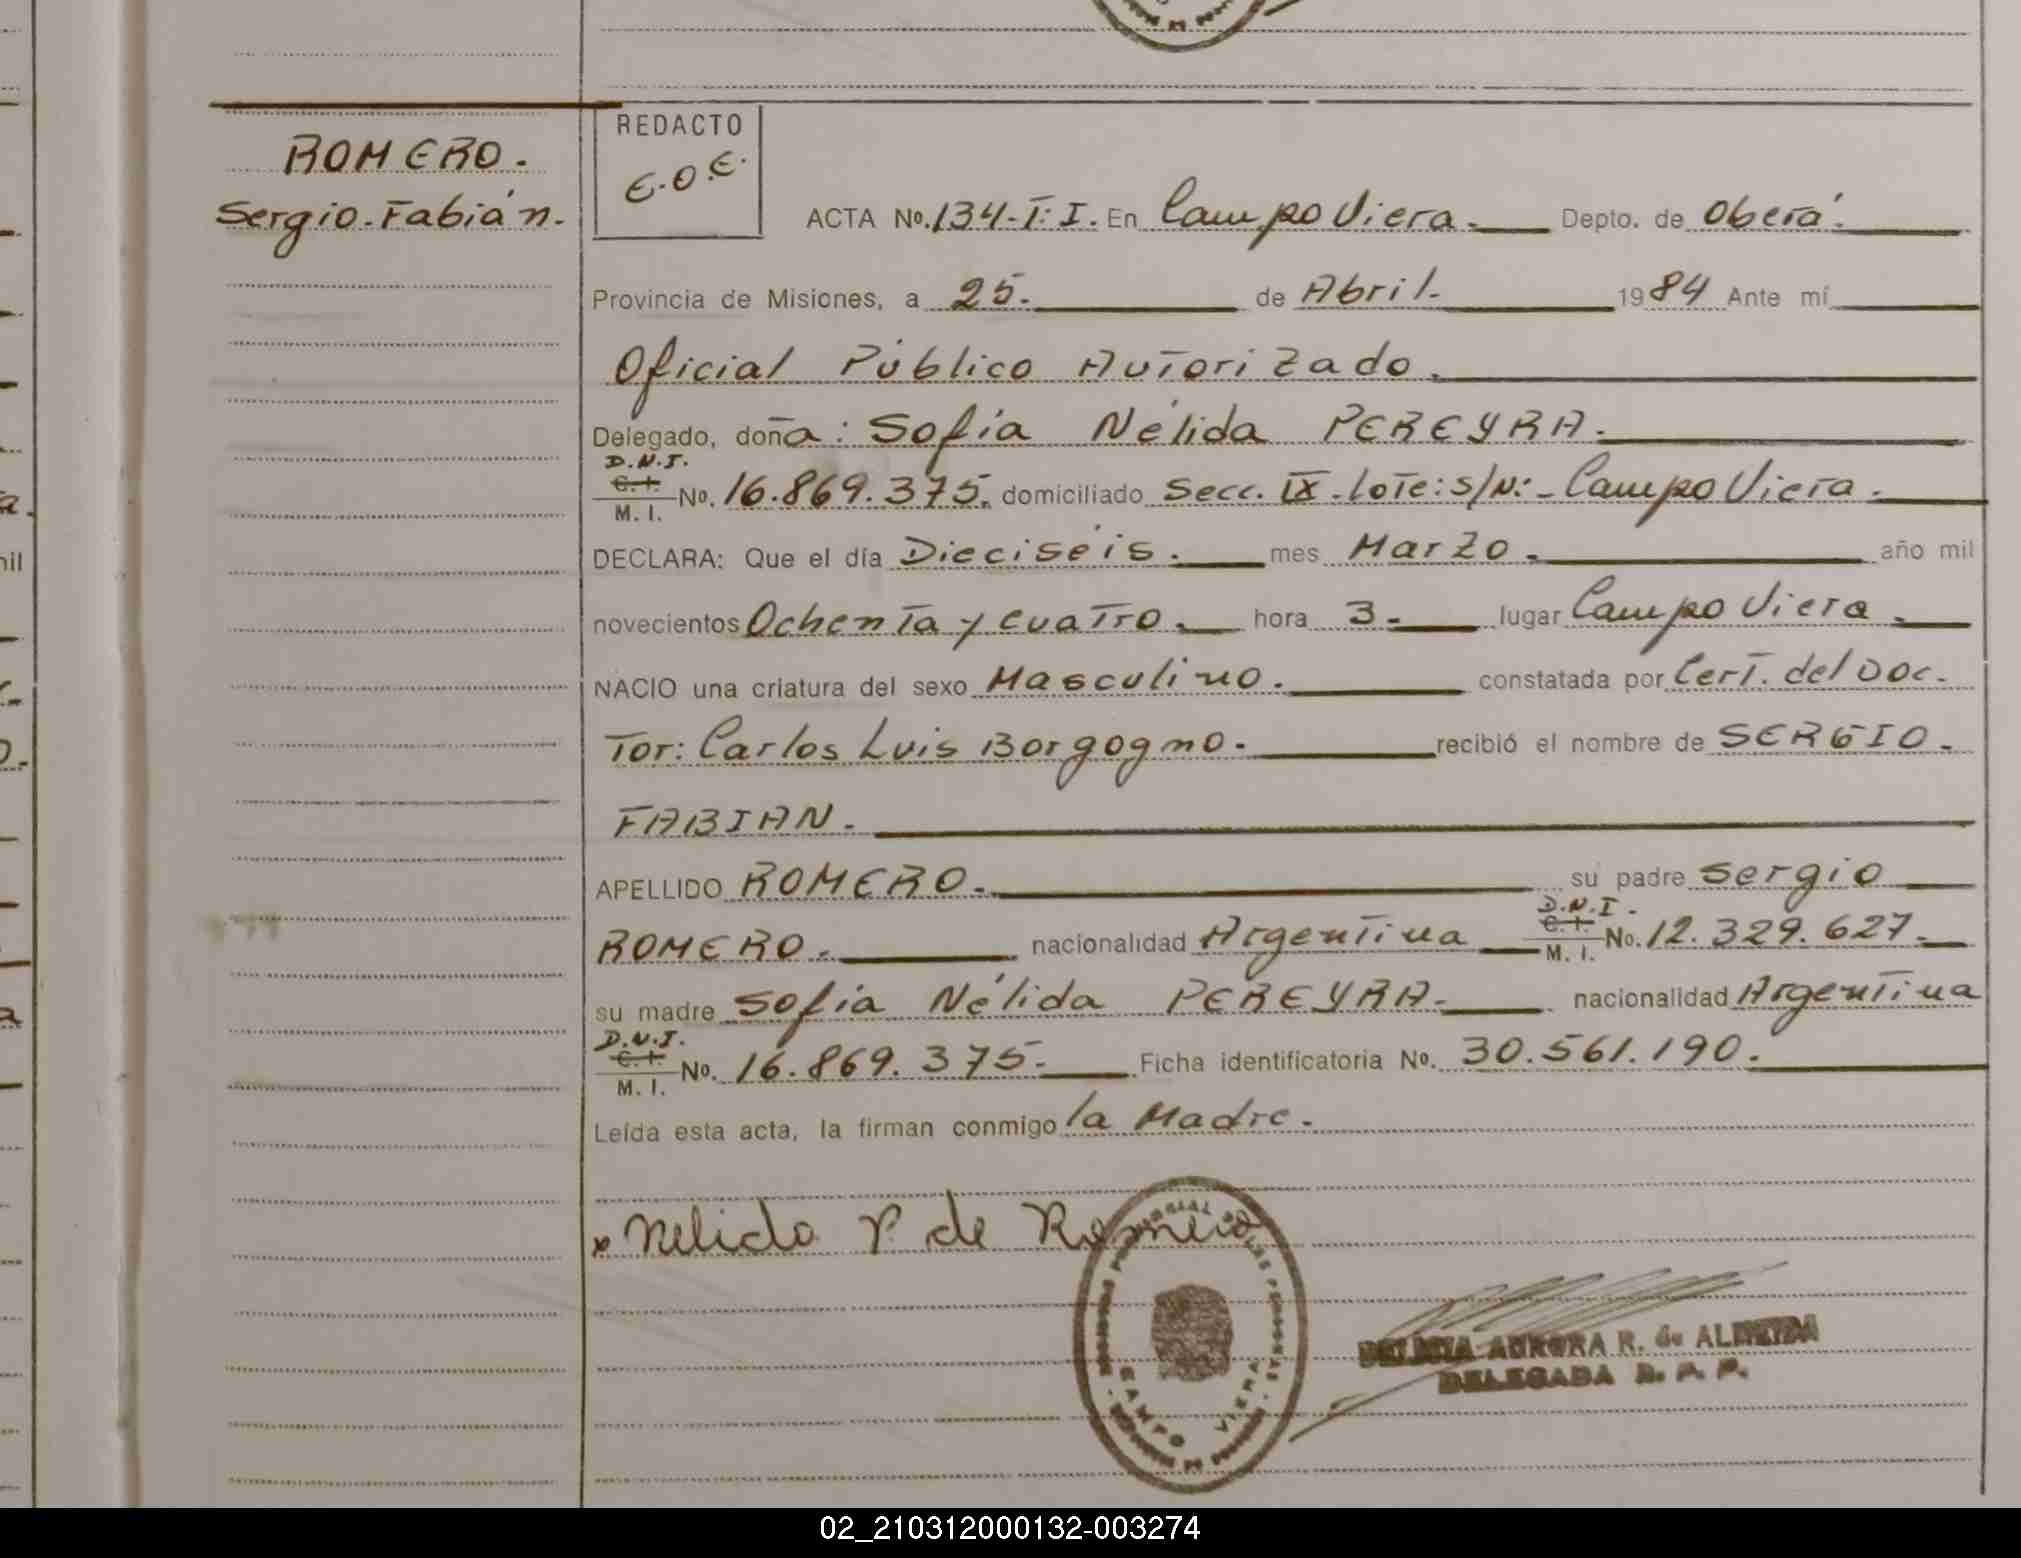 ROMERO.
Sergio. Fabián.
REDACTO
E.O.E.
ACTA No. 134-T: I. En Campo Viera. Depto. de Oberá.
Provincia de Misiones, a 25. de Abril. 1984 Ante mí
Oficial Público Autorizado.
Delegado, doña: Sofía Nélida PEREYRA.
D.N.I.
C. I.
M. I.
No. 16.869.375. domiciliado Secc. IX. lote: s/N:- Campo Viera.
DECLARA: Que el día Dieciséis. mes Marzo. año mil
novecientos Ochenta y cuatro. hora 3. lugar Campo Viera.
NACIO una criatura del sexo Masculino. constatada por Cert. del Doc.
Tor: Carlos Luis Borgogno. recibió el nombre de SERGIO.
FABIAN.
APELLIDO ROMERO. su padre Sergio
ROMERO. nacionalidad Argentina D.N.I. C. I. M. I. No. 12.329.627.
su madre Sofía Nélida PEREYRA. nacionalidad Argentina
D.N.I.
C. I.
M. I.
No. 16.869.375. Ficha identificatoria No. 30.561.190.
Leída esta acta, la firman conmigo la Madre.
x Nelida P. de Romero
CAMPO VIERA
AURORA R. de ALMEIDA
DELEGADA R. P. P.
02_210312000132-003274